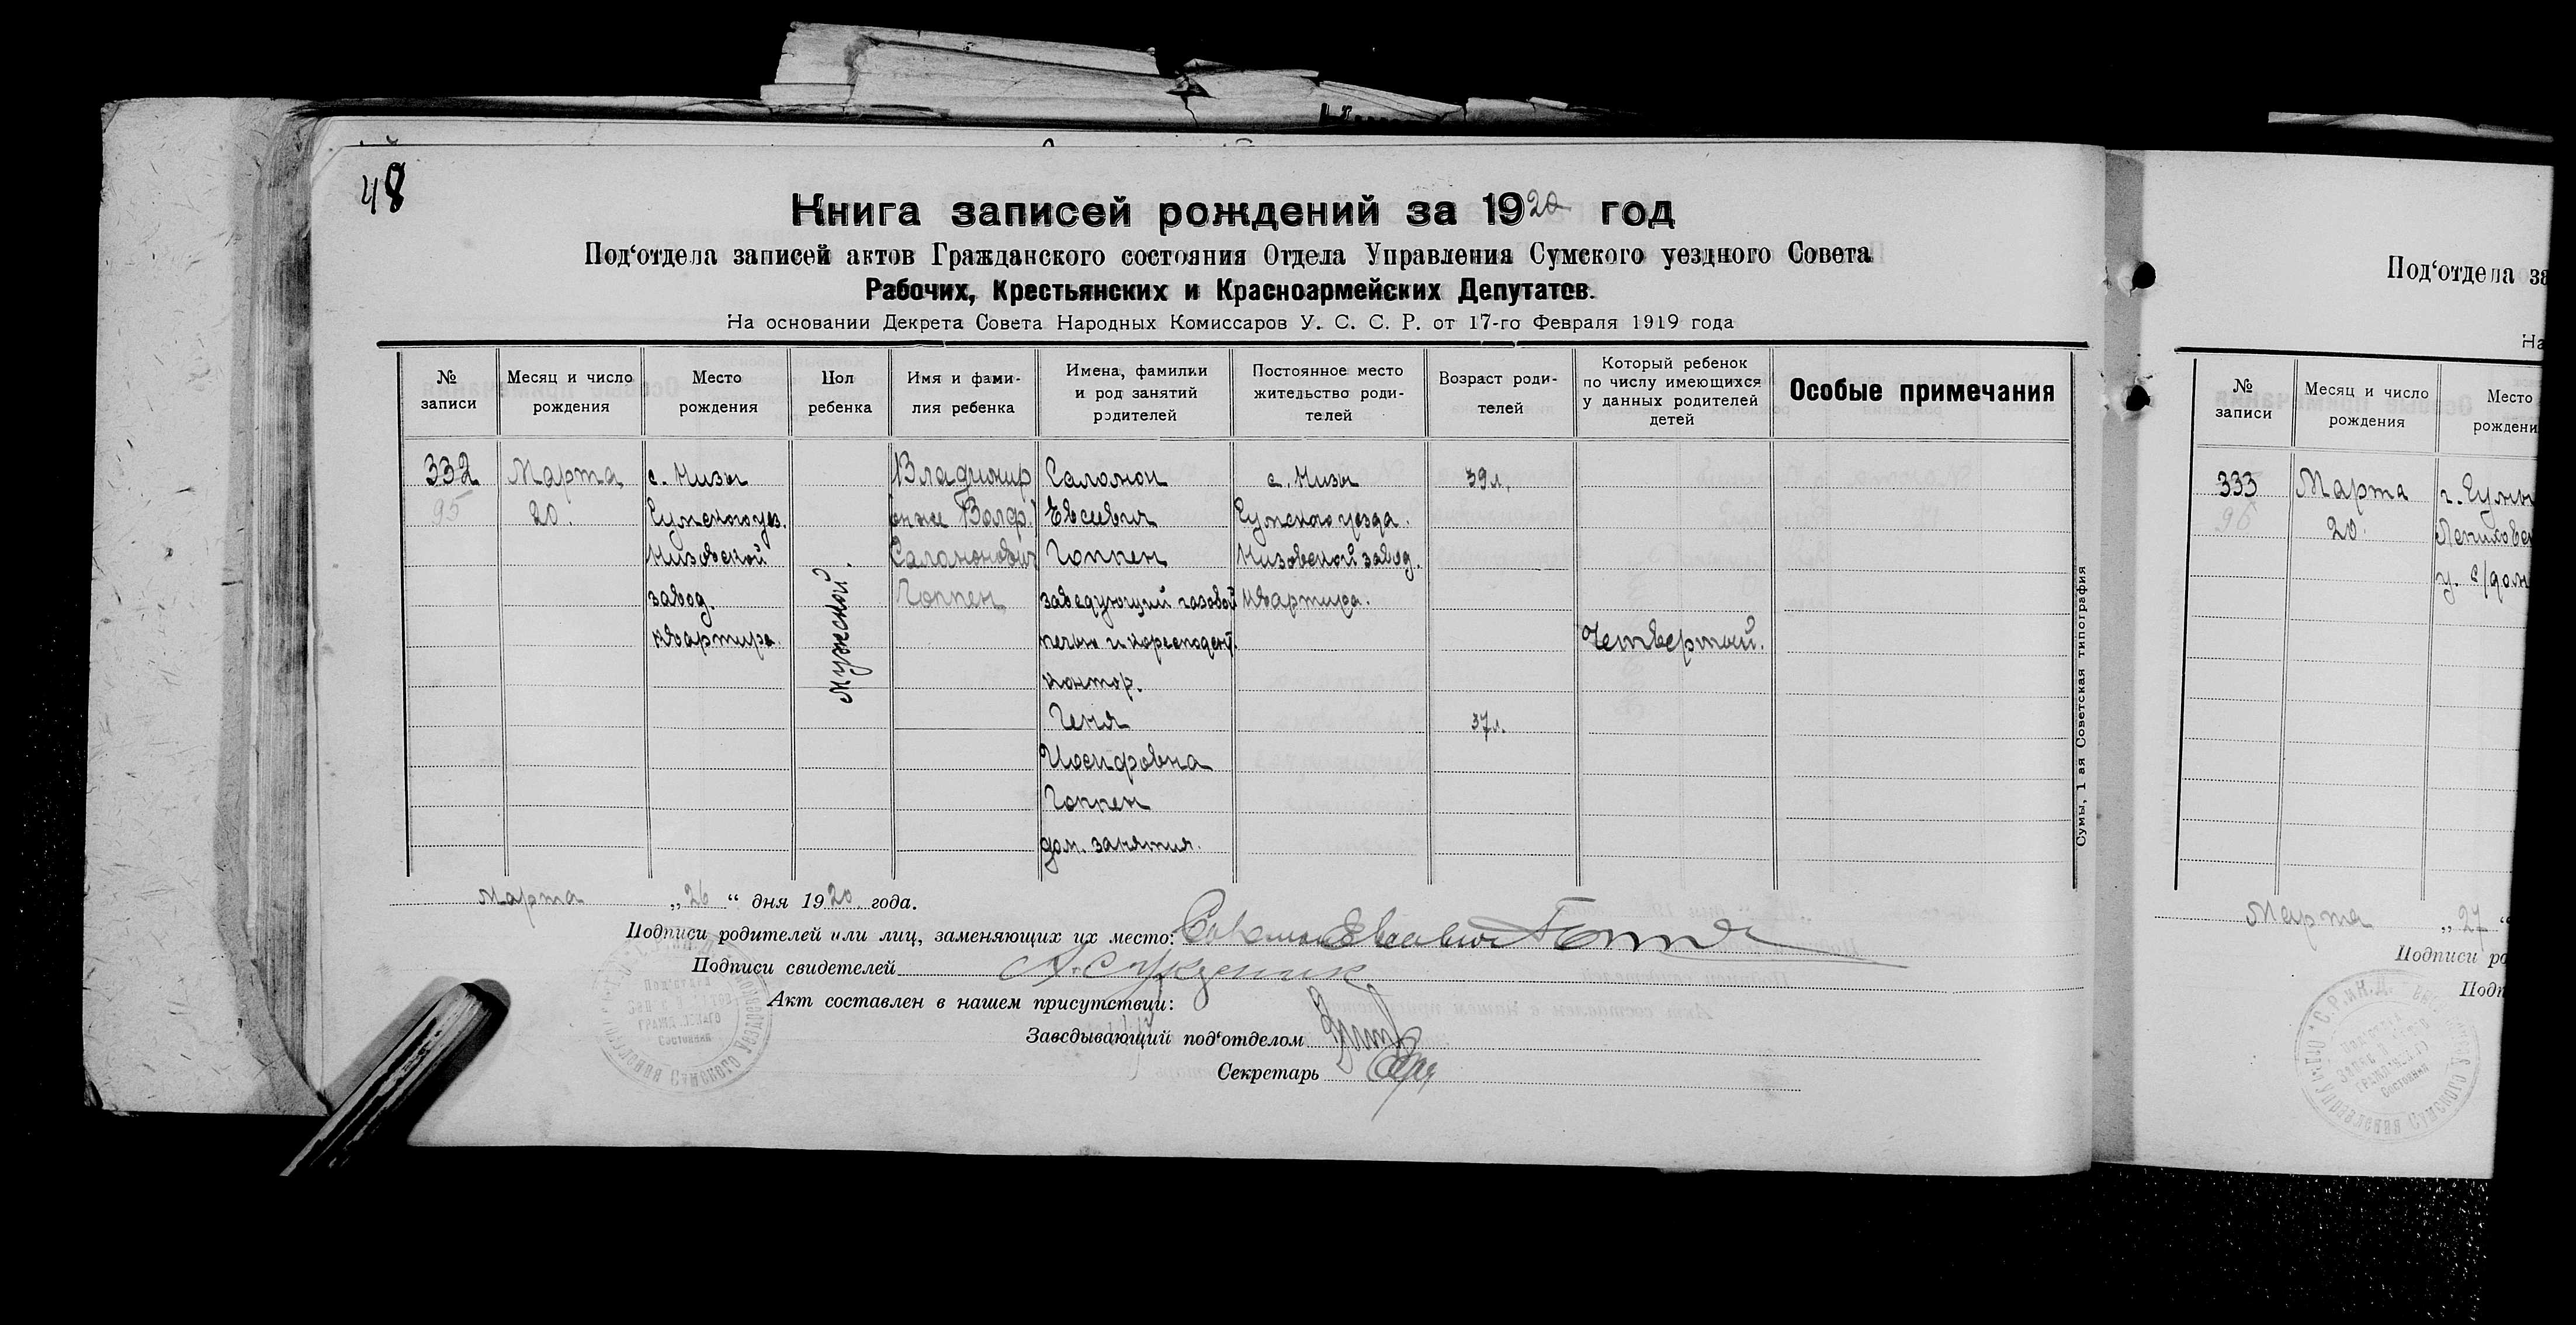 48
Книга записей рождений за 1920 год
Под‘отдела записей актов Гражданского состояния Отдела Управления Сумского уездного Совета
Рабочих, Крестьянских и Красноармейских Депутатов.
На основании Декрета Совета Народных Комиссаров У. С. С. Р. от 17-го Февраля 1919 года
№ записи
Месяц и число рождения
Место рождения
Пол ребенка
Имя и фами-
лия ребенка
Имена, фамилии
и род занятий
родителей
Постоянное место
жительство роди-
телей
Возраст роди-
телей
Который ребенок
по числу имеющихся
у данных родителей
детей
Особые примечания
332
95
Марта
20.
с. Низы
Сумского уез.
Низовской
завод.
квартира.
Мужской
Владимир
(он же Волф.)
Саломонович
Гоппен
Саломон
Евсеевич
Гоппен
заведующий газовой
печью и коресподент.
контор.
Геня
Иосифовна
Гоппен
дом. занятия.
с. Низы
Сумского уезда.
Низовской завод.
квартира.
39 л.
37 л.
Четвертый.
Марта „26“ дня 1920 года.
Подписи родителей или лиц, заменяющих их место: Саломон Евсеевич Гоппен
Подписи свидетелей
Акт составлен в нашем присутствии:
Заведывающий под‘отделом
Секретарь
Сумы, 1 ая Советская типография
Под‘отдела за
На
№ записи
Месяц и число рождения
Место
рождени
333
96
Марта
20.
г. Сумы
Марта „27“
Подписи ро
Подп